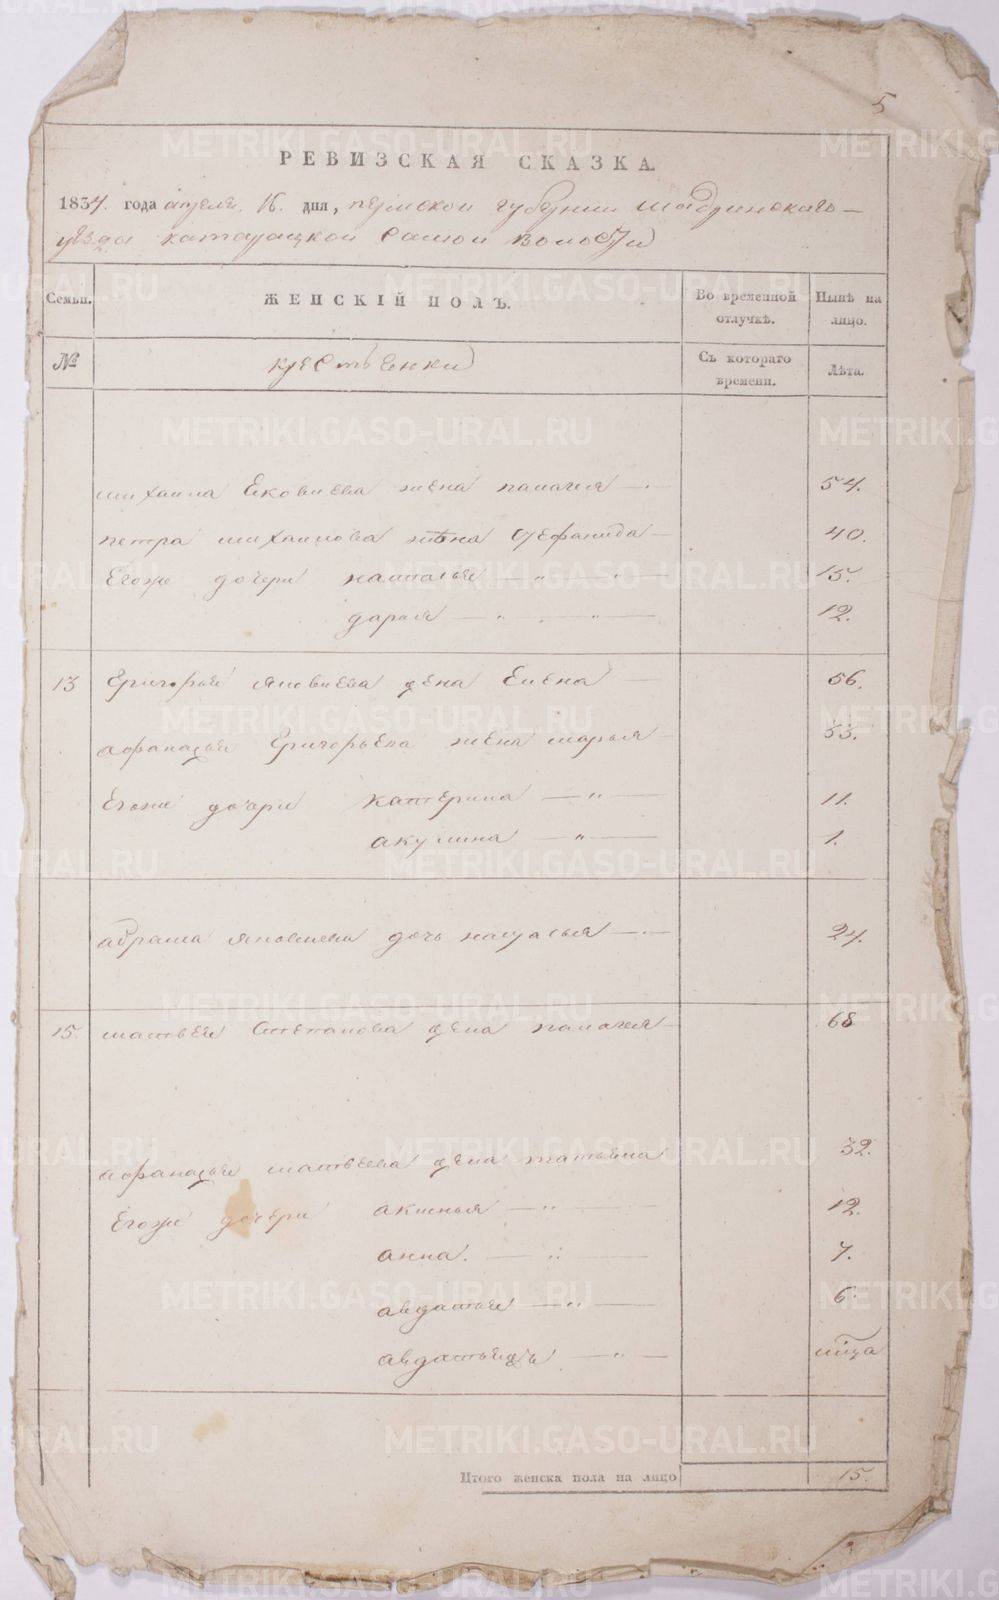 5
РЕВИЗСКАЯ СКАЗКА.
1834. года апреля 16. дня, пермской губернии шадринскаго
уезда катайацкой самой волости
Семьи. ЖЕНСКІЙ ПОЛЪ. Во временной отлучкѣ. Нынѣ на лицо.
№ крестьенки Съ котораго времени. Лѣта.
михаила Ековлева жена палагея 54.
петра михаилова жена стефанида 40.
Егоже дочери наталья 15.
дарья 12.
13 Григорья яковлева жена Елена 56.
афанасья Григорьева жена марья 33.
Егоже дочери катерина 11.
акулина 1.
абрама яковлева дочь наталья 24.
15. матвея Степанова жена палагея 68
афанасья матвеева жена татьяна 32.
Егоже дочери аксинья 12.
анна. 7.
авдатья 6.
авдатья
Итого женска пола на лицо 15.
METRIKI.GASO-URAL.RU